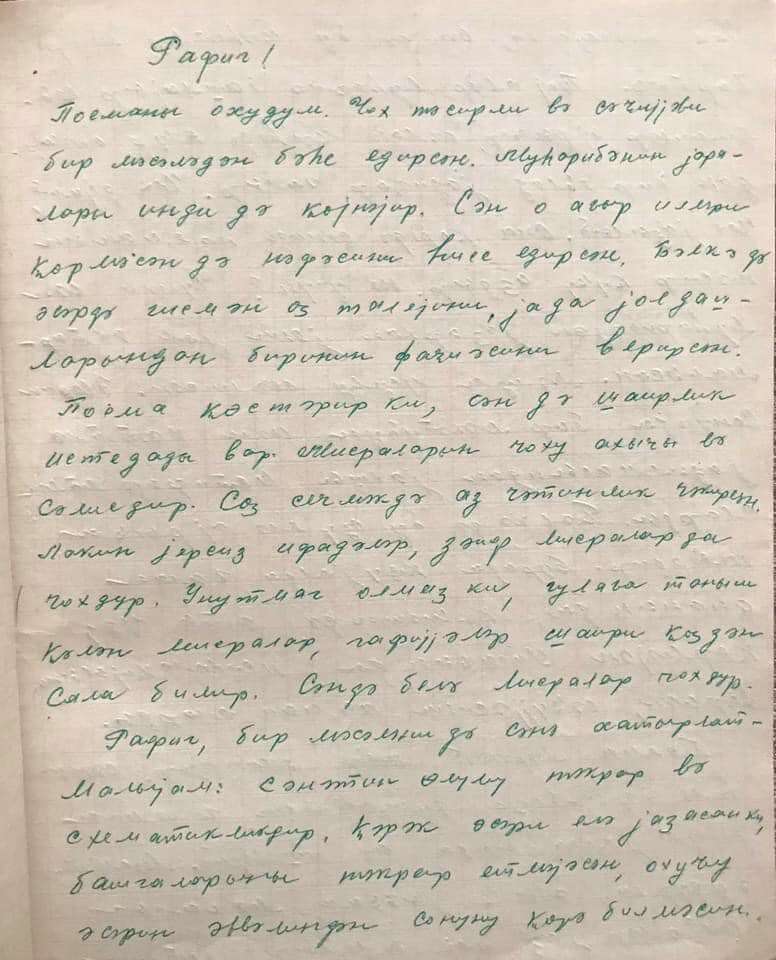 Рафиг!
Поеманы охудум. Чох тәсирли вә сәчијјәви
бир мәсәләдән бәһс едирсән. Муһарибәнин јара-
лары инди дә ҝөјнәјир. Сән о ағыр илләри
ҝөрмәсән дә нәфәсини һисс едирсән. Бәлкә дә
әсәрдә гисмән өз талејини, ја да јолдаш-
ларындан биринин фаҹиәсини верирсән.
Поема ҝөстәрир ки, сән дә шаирлик
истедады вар. Мисраларын чоху ахыҹы вә
сәлисдир. Сөз сечмәкдә аз чәтинлик чәкирсән.
Лакин јерсиз ифадәләр, зәиф мисралар да
чохдур. Унутмаг олмаз ки, гулаға таныш
ҝәлән мисралар, гафијјәләр шаири ҝөздән
сала биләр. Сәндә белә мисралар чохдур.
Рафиг, бир мәсәләни дә сәнә хатырлат-
малыјам: сәнәтин өлүмү тәкрар вә
схематикликдир. Ҝәрәк әсәри елә јазасан ки,
башгаларыны тәкрар етмәјәсән, охуҹу
әсәрин әввәлиндән сонуну ҝөрә билмәсин.